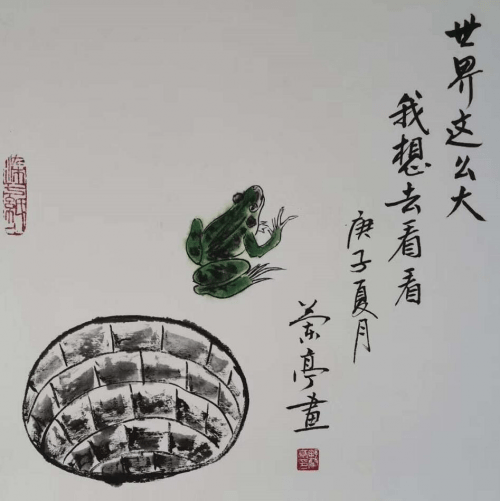 世界这么大
我想去看看
庚子夏月
兰亭画